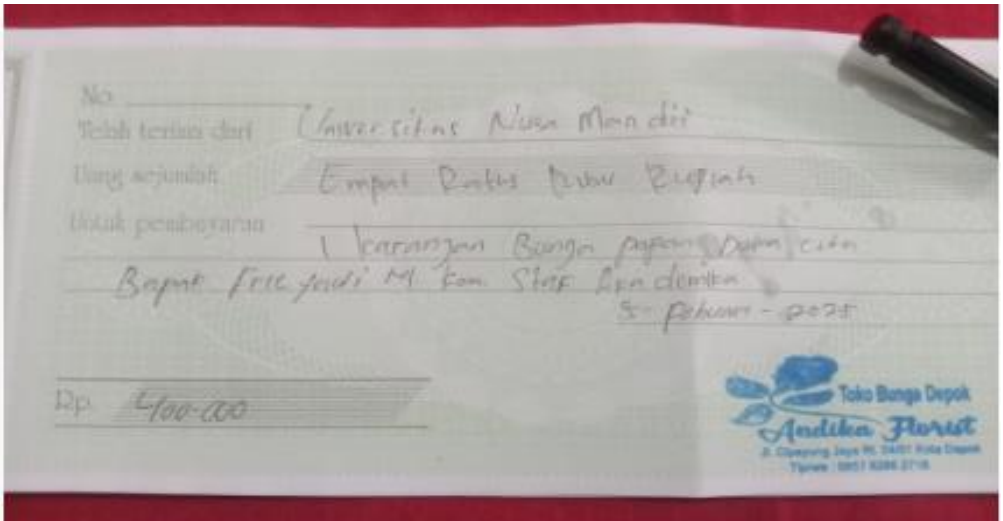 No.
Telah terima dari Universitas Nusa Mandiri
Uang sejumlah Empat Ratus Ribu Rupiah
Untuk pembayaran
1 karangan Bunga papan Duka cita
Bapak Frieyadi M. Kom. Staf Akademika
5 - Februari - 2025
Rp. 400.000
Toko Bunga Depok
Andika Florist
Jl. Cipayung Jaya Kota Depok